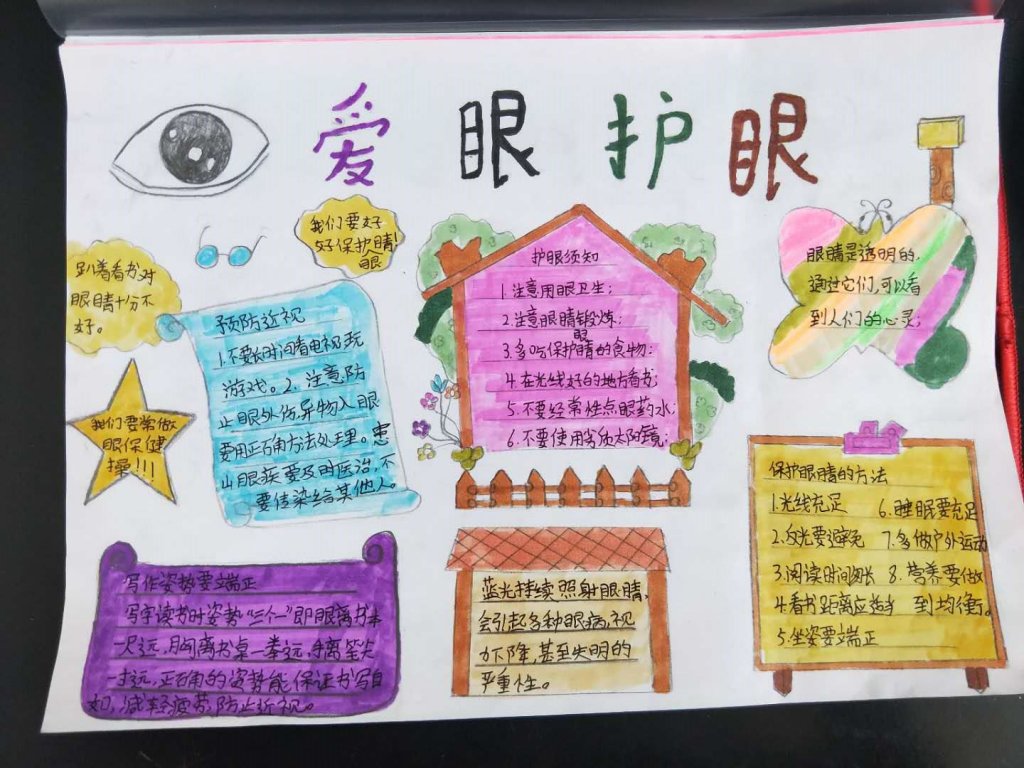 爱眼护眼
我们要好
好保护睛!
眼
趴着看书对
眼睛十分不
好。
预防近视
1.不要长时间看电视玩
游戏。2.注意防
止眼外伤,异物入眼
要用正确方法处理。患
山眼疾要及时医治,不
要传染给其他人。
我们要常做
眼保健
操!!!
护眼须知
1.注意用眼卫生;
2.注意眼睛锻炼;
眼
3.多吃保护睛的食物;
4.在光线好的地方看书;
5.不要经常性点眼药水;
6.不要使用劣质太阳镜;
眼睛是透明的,
通过它们,可以看
到人们的心灵;
写作姿势要端正
写字读书时姿势“三个一”即眼离书本
一尺远,胸离书桌一拳远,手离笔尖
一寸远,正确的姿势能保证书写自
如,减轻疲劳,防止近视。
蓝光持续照射眼睛,
会引起多种眼病,视
力下降,甚至失明的
严重性。
保护眼睛的方法
1.光线充足 6.睡眠要充足
2.反光要避免 7.多做户外运动
3.阅读时间勿长 8.营养要做
4.看书距离应适当 到均衡。
5.坐姿要端正